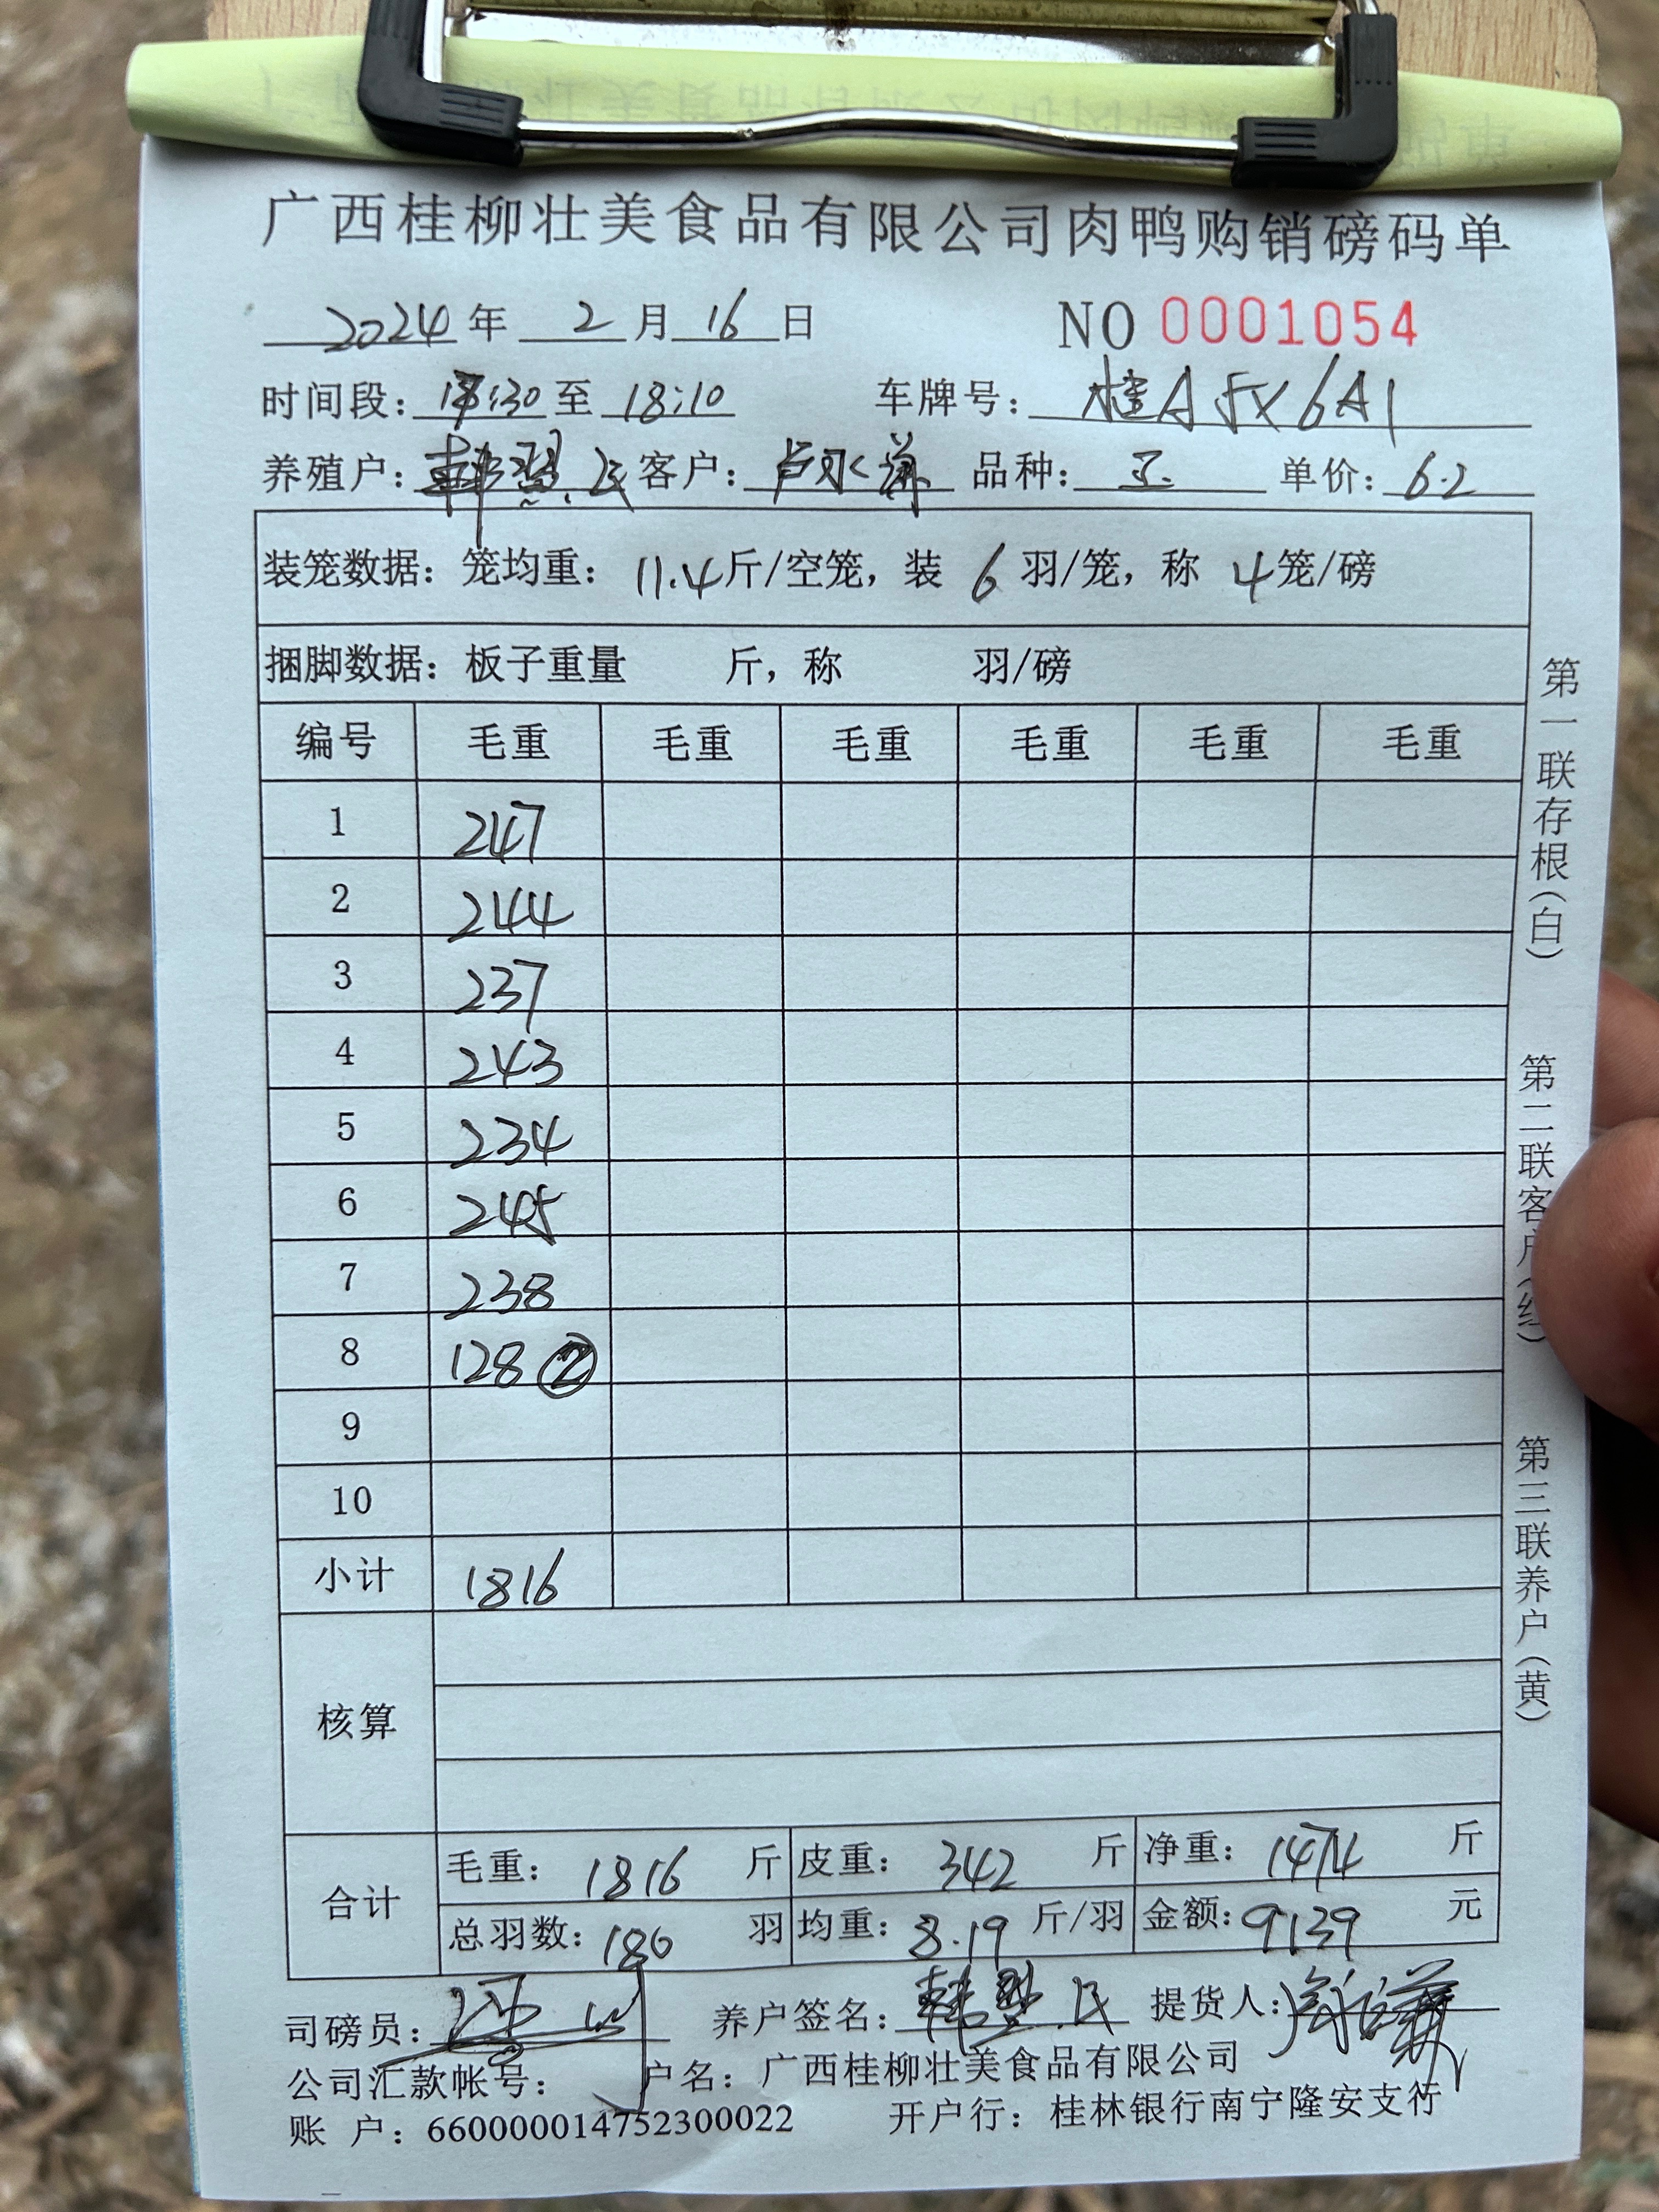 广西桂柳壮美食品有限公司肉鸭购销磅码单
2024年 2月16日 NO 0001054
时间段：17:30至 18:10 车牌号：桂A FX6A1
养殖户：韩 民 客户：卢永 品种： 单价：6.2
装笼数据：笼均重：11.4斤/空笼，装 6 羽/笼，称 4笼/磅
捆脚数据：板子重量 斤，称 羽/磅
编号 毛重 毛重 毛重 毛重 毛重 毛重
1 247
2 244
3 237
4 243
5 234
6 245
7 238
8 128 ②
9
10
小计 1816
核算
合计 毛重：1816 斤 皮重：342 斤 净重：1474 斤
总羽数：180 羽 均重：8.19 斤/羽 金额：9139 元
司磅员： 养户签名：韩 民 提货人：
公司汇款帐号： 户名：广西桂柳壮美食品有限公司
账 户：660000014752300022 开户行：桂林银行南宁隆安支行
第一联存根（白） 第二联客户（红） 第三联养户（黄）